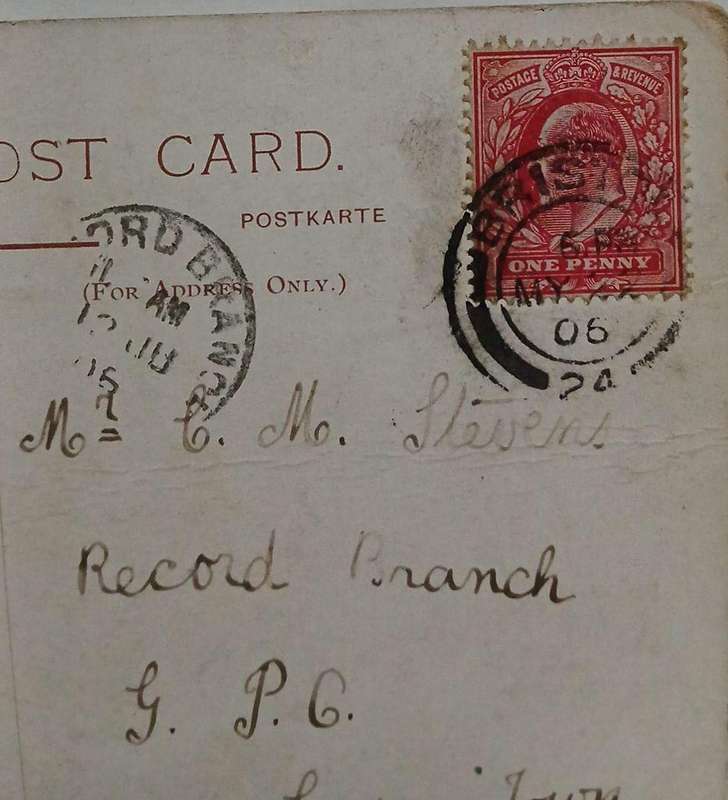 POSTAGE & REVENUE
OST CARD.
BRIST
POSTKARTE
6 PM
ONE PENNY
ORD BRANC
(For Address Only.)
AM
MY
06
JU
24
Mr C. M. Stevens
Record Branch
G. P. O.